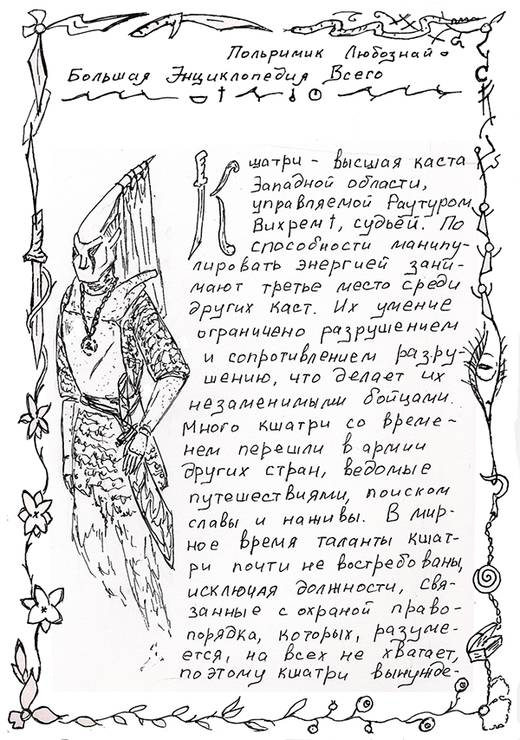 Польримик Любознай
Большая Энциклопедия Всего
Кшатри - высшая каста
Западной области,
управляемой Раутуром
Вихрем†, судьёй. По
способности манипу-
лировать энергией зани-
мают третье место среди
других каст. Их умение
ограничено разрушением
и сопротивлением разру-
шению, что делает их
незаменимыми бойцами.
Много кшатри со време-
нем перешли в армии
других стран, ведомые
путешествиями, поиском
славы и наживы. В мир-
ное время таланты кшат-
ри почти не востребованы,
исключая должности, свя-
занные с охраной право-
порядка, которых, разуме-
ется, на всех не хватает,
поэтому кшатри вынужде-